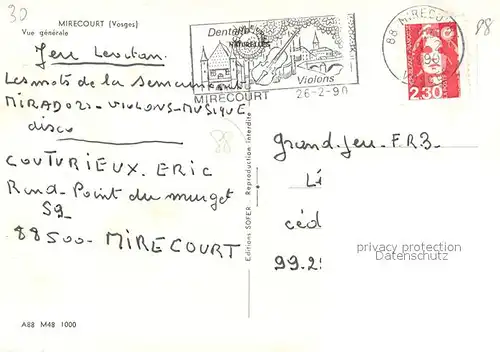 30
MIRECOURT (Vosges)
Vue générale
Jeu Levitan
Les mots de la semaine
MIRADORS - VIOLONS - MUSIQUE
disco
COUTURIEUX. ERIC
Rond-Point du
59
88500 - MIRECOURT
A88 M48 1000
Dentelles
NATURELLES
Violons
MIRECOURT 26-2-90
88 MIRECOURT
2,30
88
88
Editions SOFER - Reproduction interdite
grand-jeu-FR3-
Lé
céd
99.2
privacy protection
Datenschutz